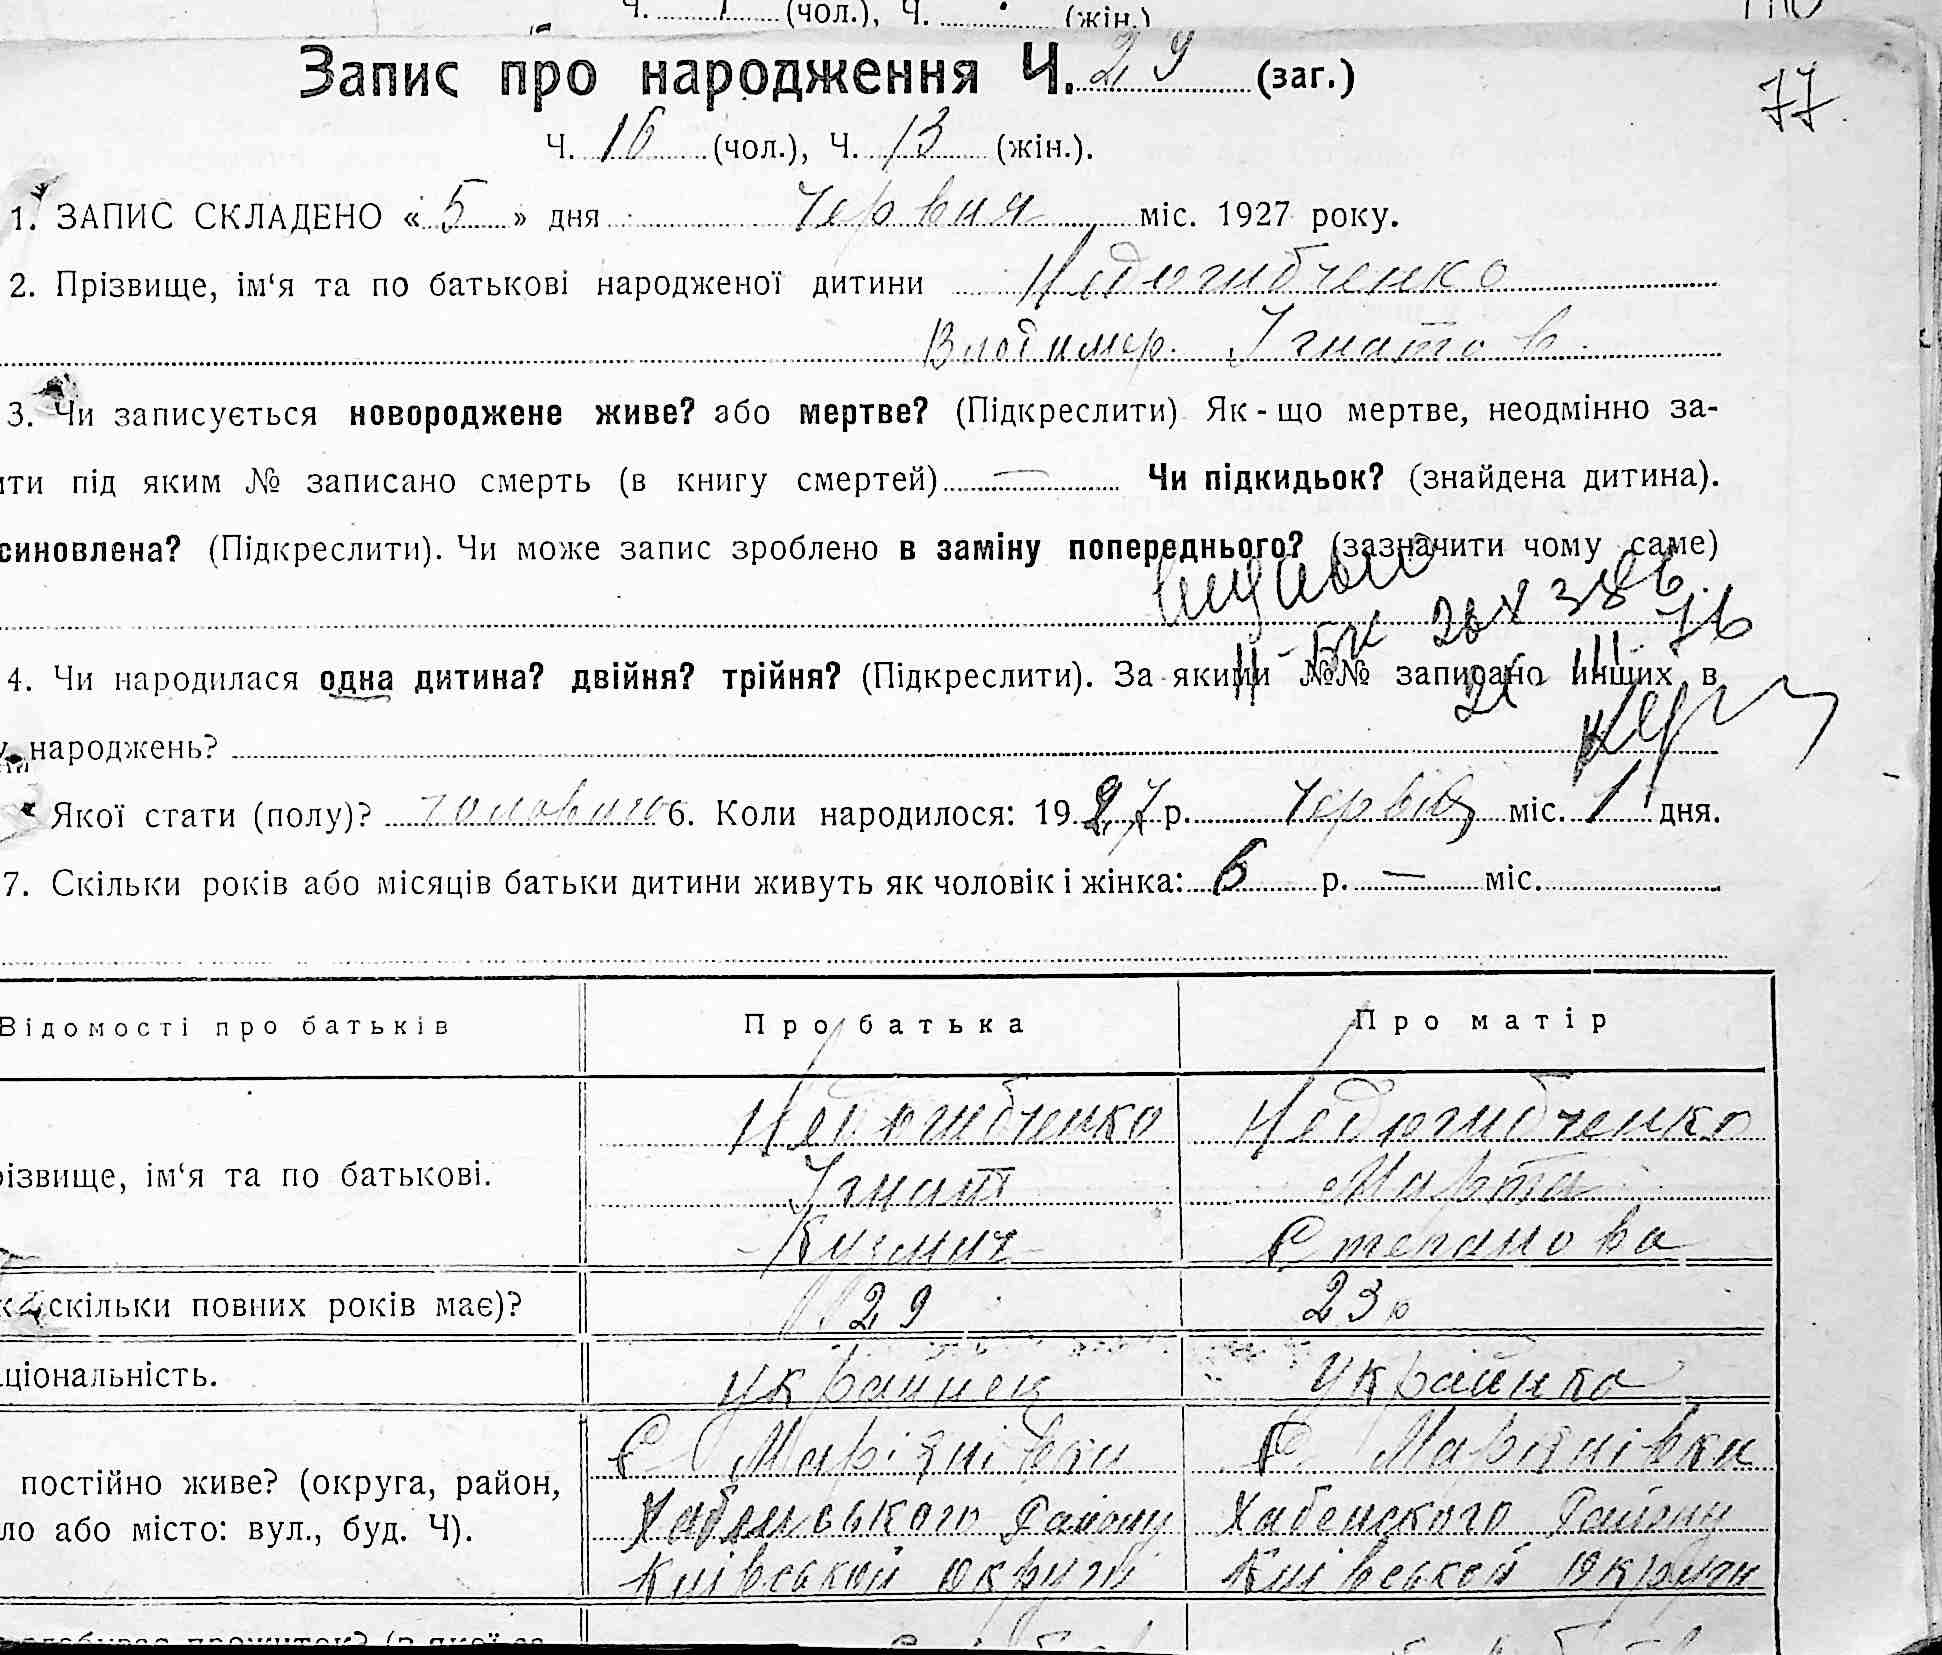 Ч. (чол.), Ч. (жін.)
Запис про народження Ч. 29 (заг.)
77
Ч. 16 (чол.), Ч. 13 (жін.).
1. ЗАПИС СКЛАДЕНО « 5 » дня Червня міс. 1927 року.
2. Прізвище, ім‘я та по батькові народженої дитини Недогибченко
Владимер. Ігнатов.
3. Чи записується новороджене живе? або мертве? (Підкреслити) Як - що мертве, неодмінно за-
ити під яким № записано смерть (в книгу смертей) — Чи підкидьок? (знайдена дитина).
синовлена? (Підкреслити). Чи може запис зроблено в заміну попереднього? (зазначити чому саме)
4. Чи народилася одна дитина? двійня? трійня? (Підкреслити). За якими №№ записано инших в
у народжень?
Якої стати (полу)? чоловичо 6. Коли народилося: 1927 р. Червця міс. 1 дня.
7. Скільки років або місяців батьки дитини живуть як чоловік і жінка: 6 р. — міс.
Відомості про батьків Про батька Про матір
Недогибченко Недогибченко
різвище, ім‘я та по батькові. Ігнат Марта
Кузмич Степанова
скільки повних років має)? 29 23
ціональність. Українец Українка
С Маріянівки С Маріянівки
постійно живе? (округа, район, Хабенського Району Хабенского Району
ло або місто: вул., буд. Ч). Київської округи Київської округи